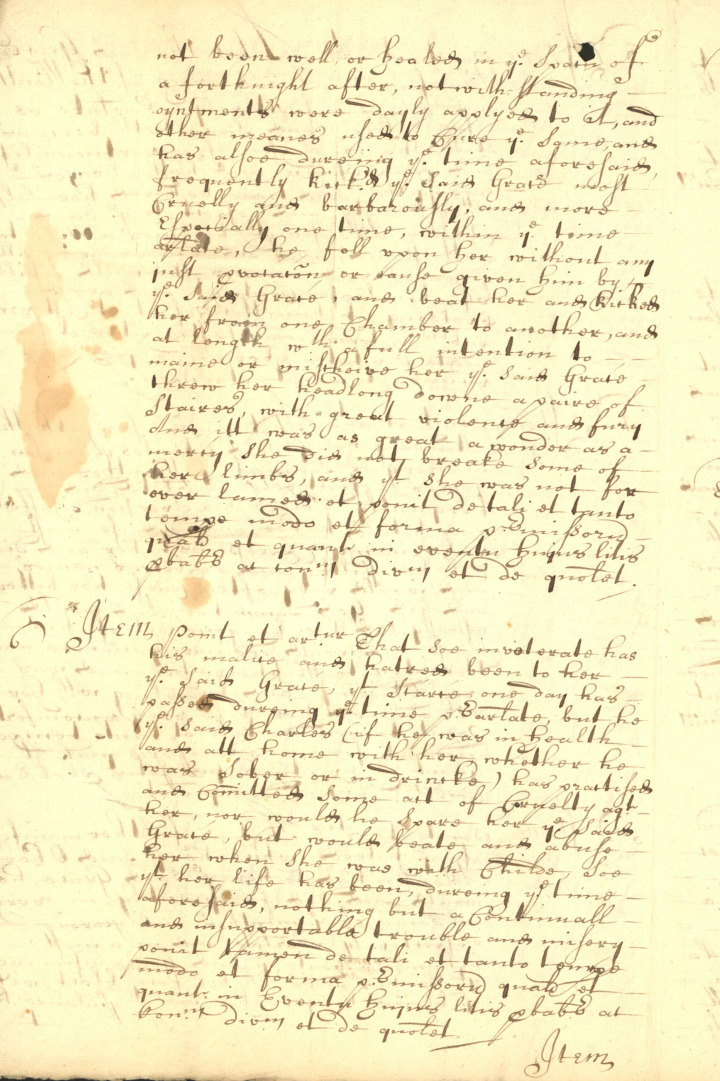 not been well, or healed in ye. Space of
a fortknight after, notwithstanding
oyntments were dayly applyed to it, and
other meanes used to Cure ye. Same, and
has alsoe dureing ye. time aforesaid,
frequently kick'd ye. Said Grace most
Cruelly and barbarously, and more
Especially one time, within ye time
arlate, he fell upon her without any
just provocatõn or cause given him by
ye. Said Grace, and beat her and kicked
her from one Chamber to another, and
at length wth. full intention to
maime or mischeive her ye. Said Grace
threw her headlong downe a paire of
Staires, with great violence and fury
And itt was as great a wonder as a
mercy She did not breake some of
her limbs, and yt She was not for
ever lamed. et ponit de tali et tanto
tempe modo et forma p.Emissorũ
qual et quant in eventu hujus litis
pbabr at conm divm et de quolet.
Item ponit et artur That Soe inveterate has
his malice and hatred been to her
ye. Said Grace, yt Scarce one day has
passed dureing ye time p.Earlate, but he
ye. Said Charles (if he was in health
and att home with her, whether he
was Sober or in drincke) has practised
and Committed Some act of Cruelty agt.
her, nor would he Spare her ye. Said
Grace, but would beate and abuse
her when She was with Childe, Soe
yt. her life has been, dureing ye time
aforesaid, nothing but a Continuall
and insupportable trouble and misery
ponit tamen de tali et tanto tempe
modo et forma p.Emissorũ qual et
quant. in Eventu hujus litis pbabr at
conm. divm et de quolet
Item